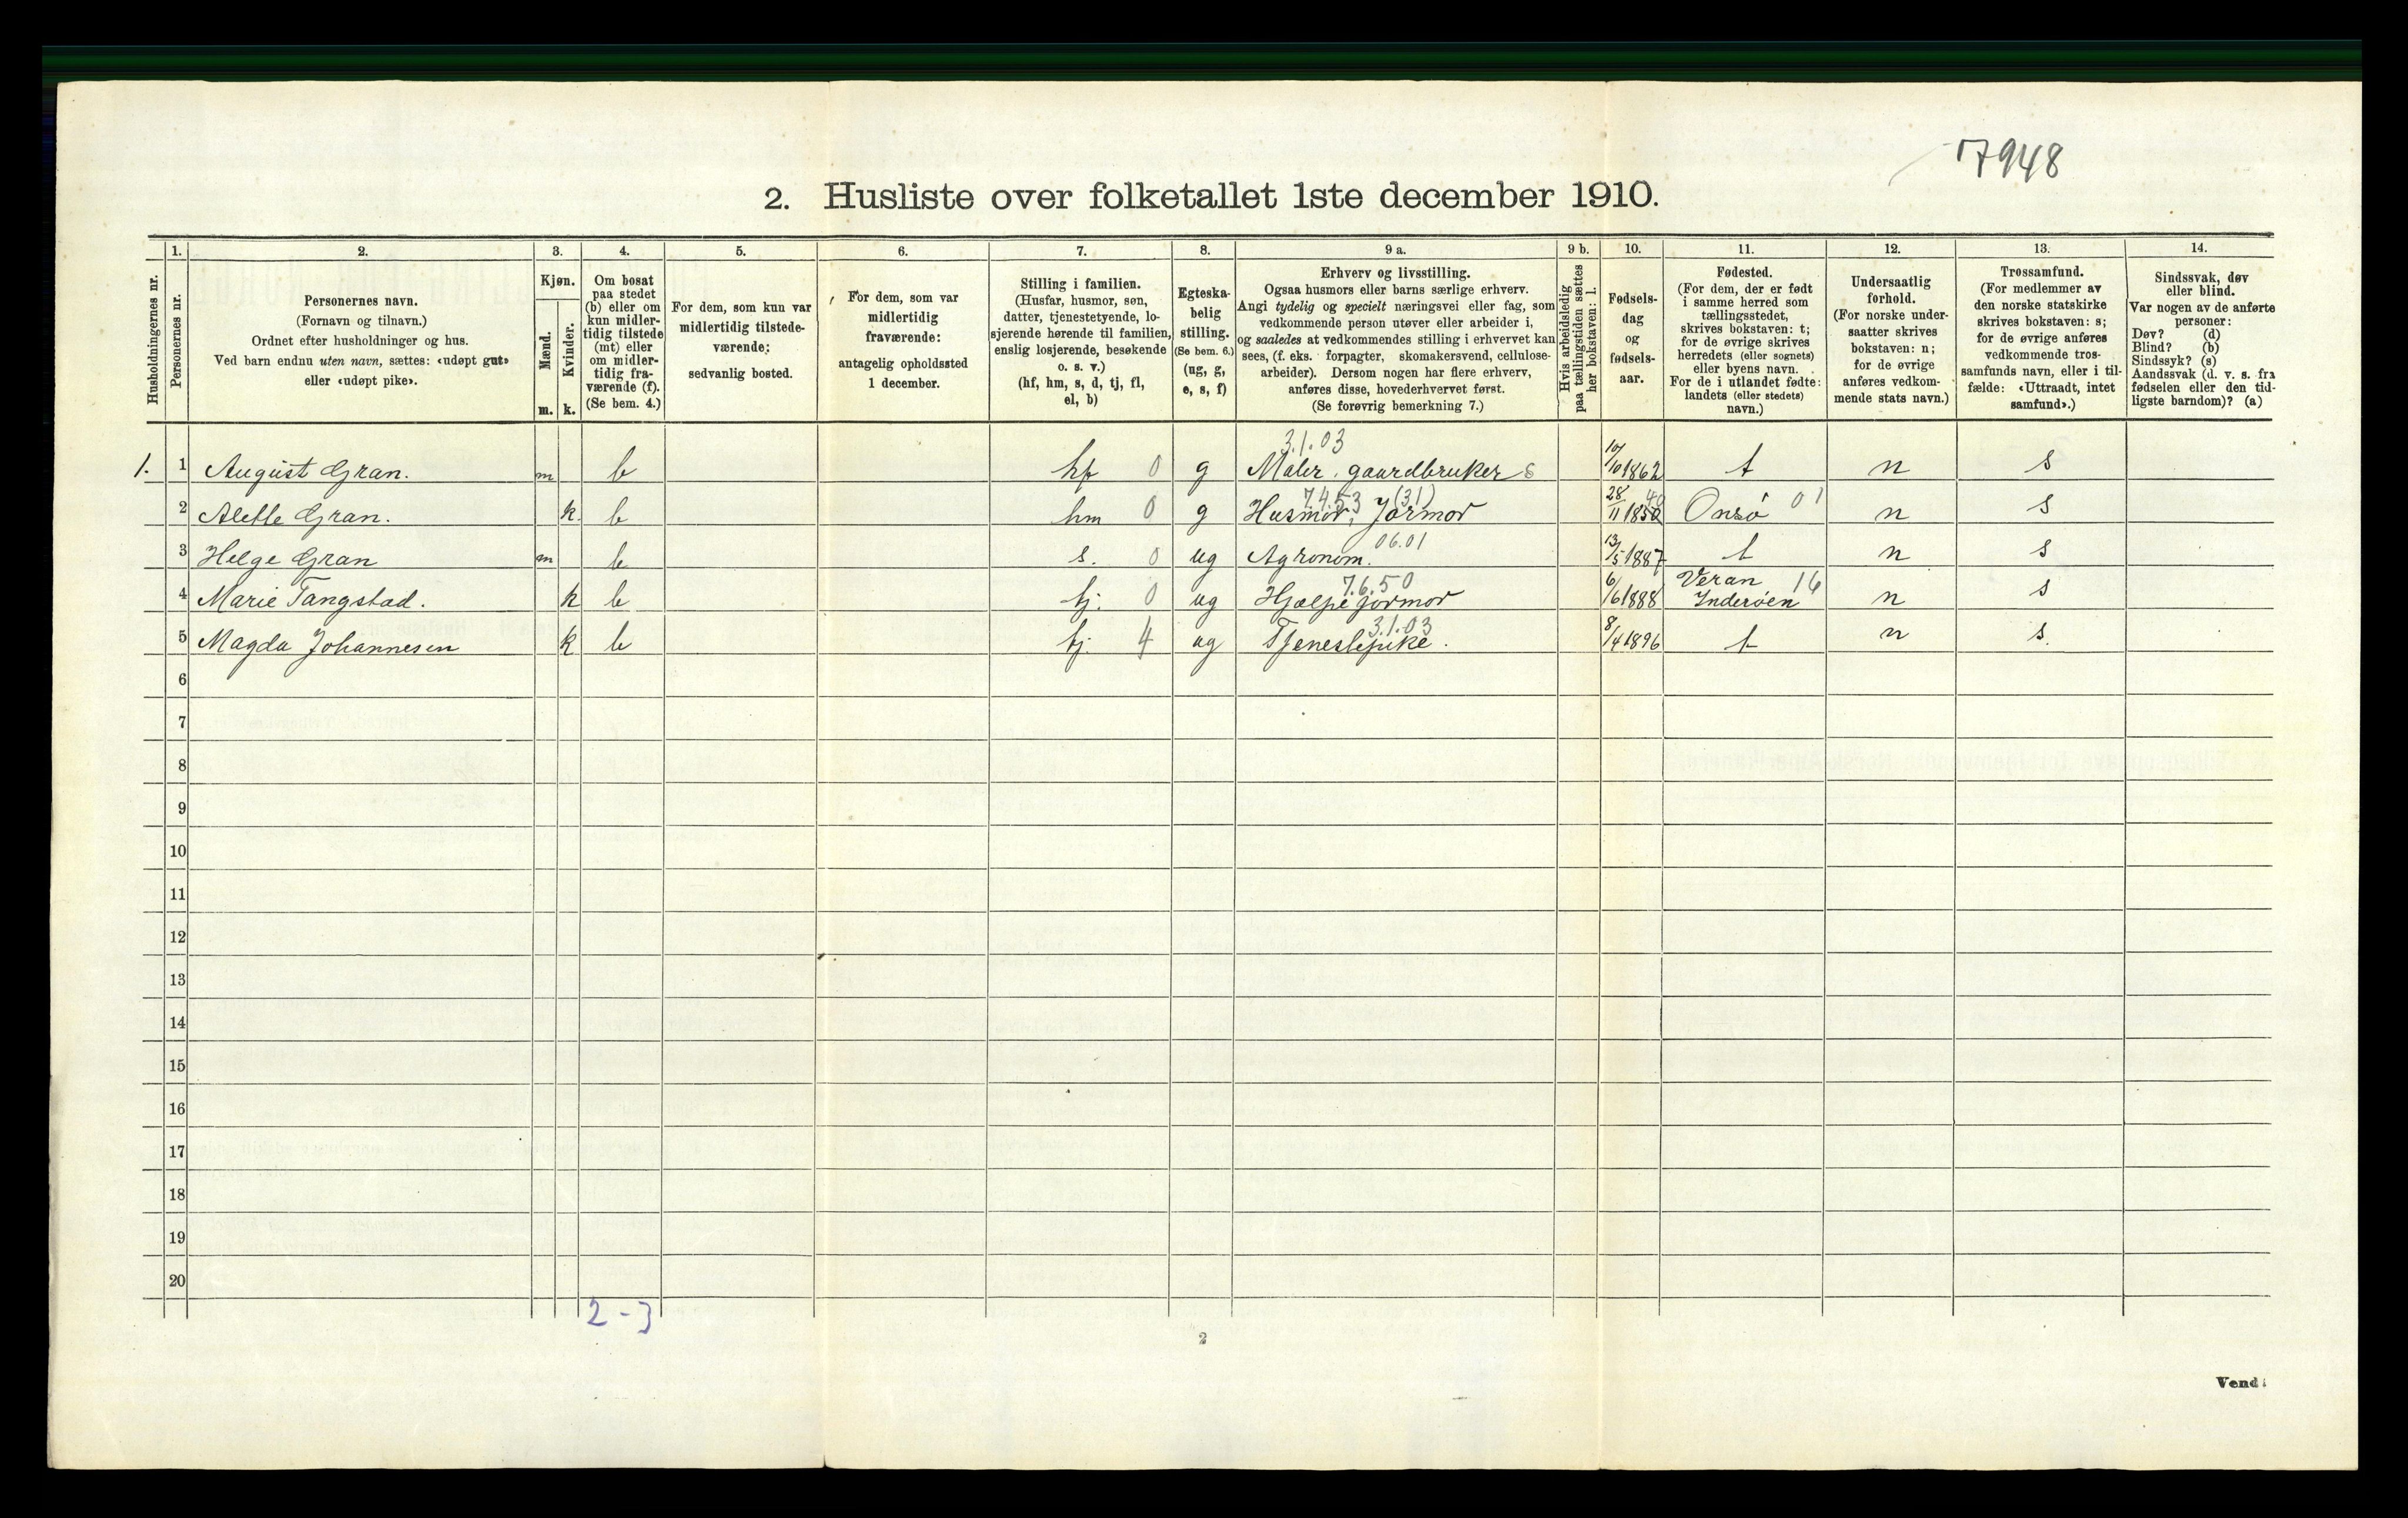 7948
2. Husliste over folketallet 1ste december 1910.
Husholdningernes nr.
1.
Personernes nr.
2.
Personernes navn.
(Fornavn og tilnavn.)
Ordnet efter husholdninger og hus.
Ved barn endnu uten navn, sættes: «udøpt gut»
eller «udøpt pike».
3.
Kjøn.
Mænd.
m.
Kvinder.
k.
4.
Om bosat
paa stedet
(b) eller om
kun midler-
tidig tilstede
(mt) eller
om midler-
tidig fra-
værende (f).
(Se bem. 4.)
5.
For dem, som kun var
midlertidig tilstede-
værende:
sedvanlig bosted.
6.
For dem, som var
midlertidig
fraværende:
antagelig opholdssted
1 december.
7.
Stilling i familien.
(Husfar, husmor, søn,
datter, tjenestetyende, lo-
sjerende hørende til familien,
enslig losjerende, besøkende
o. s. v.)
(hf, hm, s, d, tj, fl,
el, b)
8.
Egteska-
belig
stilling.
(Se bem. 6.)
(ug, g,
e, s, f)
9 a.
Erhverv og livsstilling.
Ogsaa husmors eller barns særlige erhverv.
Angi tydelig og specielt næringsvei eller fag, som
vedkommende person utøver eller arbeider i,
og saaledes at vedkommendes stilling i erhvervet kan
sees, (f. eks. forpagter, skomakersvend, cellulose-
arbeider). Dersom nogen har flere erhverv,
anføres disse, hovederhvervet først.
(Se forøvrig bemerkning 7.)
9 b.
Hvis arbeidsledig
paa tællingstiden sættes
her bokstaven: l.
10.
Fødsels-
dag
og
fødsels-
aar.
11.
Fødested.
(For dem, der er født
i samme herred som
tællingsstedet,
skrives bokstaven: t;
for de øvrige skrives
herredets (eller sognets)
eller byens navn.
For de i utlandet fødte:
landets (eller stedets)
navn.)
12.
Undersaatlig
forhold.
(For norske under-
saatter skrives
bokstaven: n;
for de øvrige
anføres vedkom-
mende stats navn.)
13.
Trossamfund.
(For medlemmer av
den norske statskirke
skrives bokstaven: s;
for de øvrige anføres
vedkommende tros-
samfunds navn, eller i til-
fælde: «Uttraadt, intet
samfund».)
14.
Sindssvak, døv
eller blind.
Var nogen av de anførte
personer:
Døv? (d)
Blind? (b)
Sindssyk? (s)
Aandssvak (d. v. s. fra
fødselen eller den tid-
ligste barndom)? (a)
3.1.03
1. 1 August Gran. m b hf 0 g Maler. gaardbruker s 10/10 1862 t n s
7.4.53 (31) 49
2 Alette Gran. k. b hm 0 g Husmor, Jormor 28/11 1850 Onsö 01 n s
06.01
3 Helge Gran m b s. 0 ug Agronom. 13/5 1887 t n s
7.6.50 Veran 16
4 Marie Tangstad. k b tj. 0 ug Hjælpe jormor 6/6 1888 Inderöen n s
3.1.03
5 Magda Johannesen k b tj. 4 ug Tjenestepike. 8/4 1896 t n s.
6
7
8
9
10
11
12
13
14
15
16
17
18
19
20
2 - 3
2
Vend!